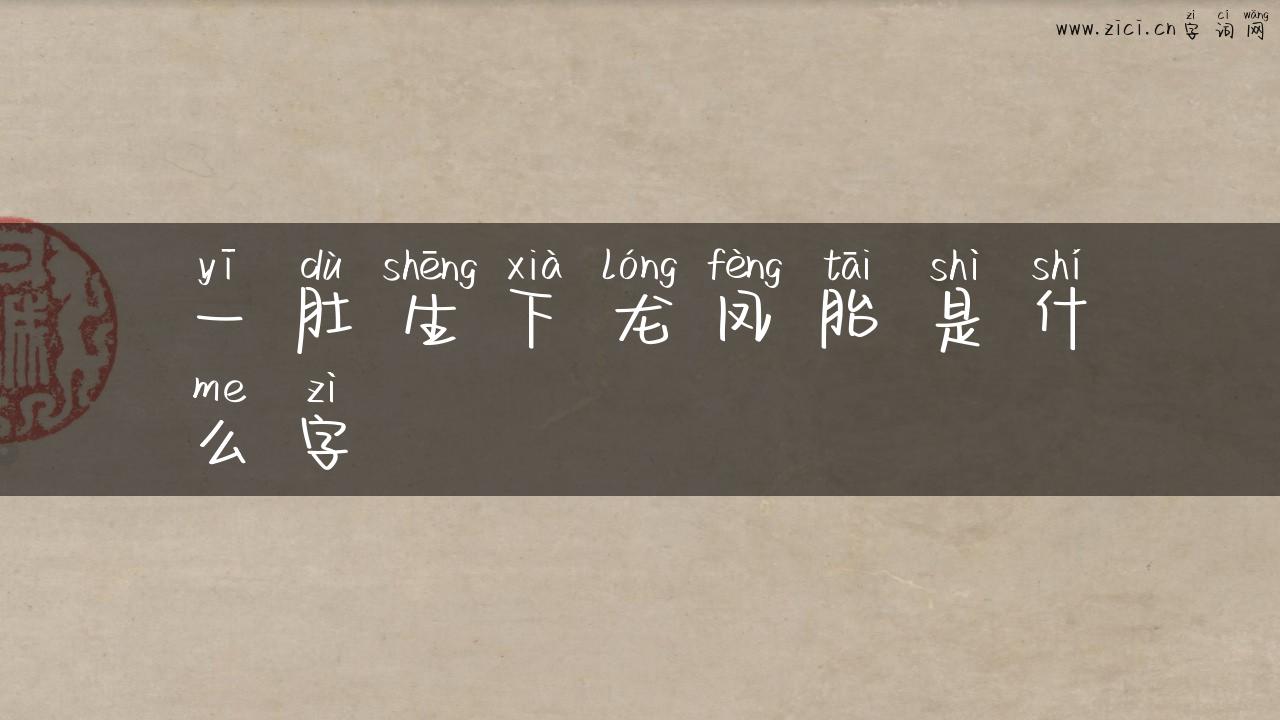 zì cí wǎng
www.zici.cn 字词网
yī dù shēng xià lóng fèng tāi shì shí
一肚生下龙凤胎是什
me zì
么字